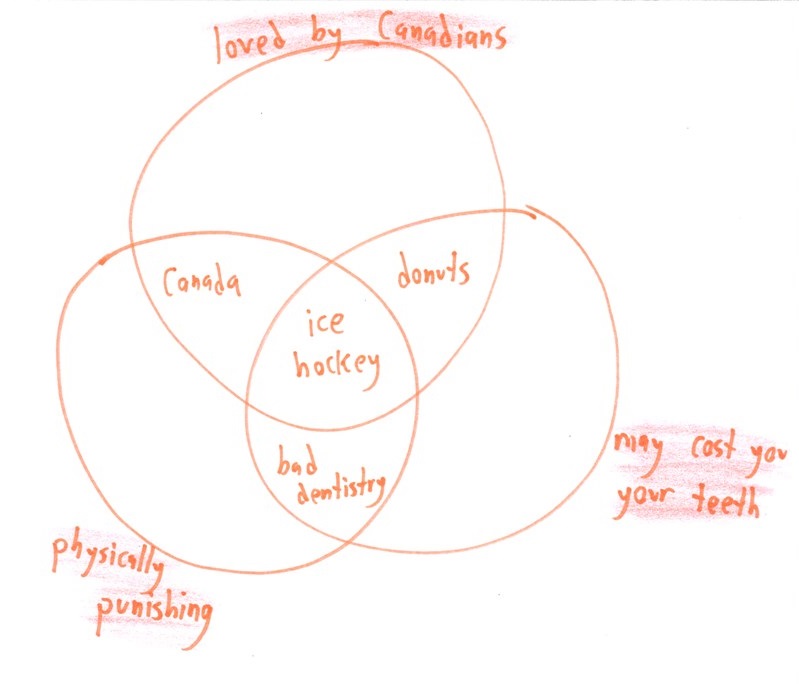 loved by Canadians
Canada
donuts
ice
hockey
bad
dentistry
may cost you
your teeth
physically
punishing